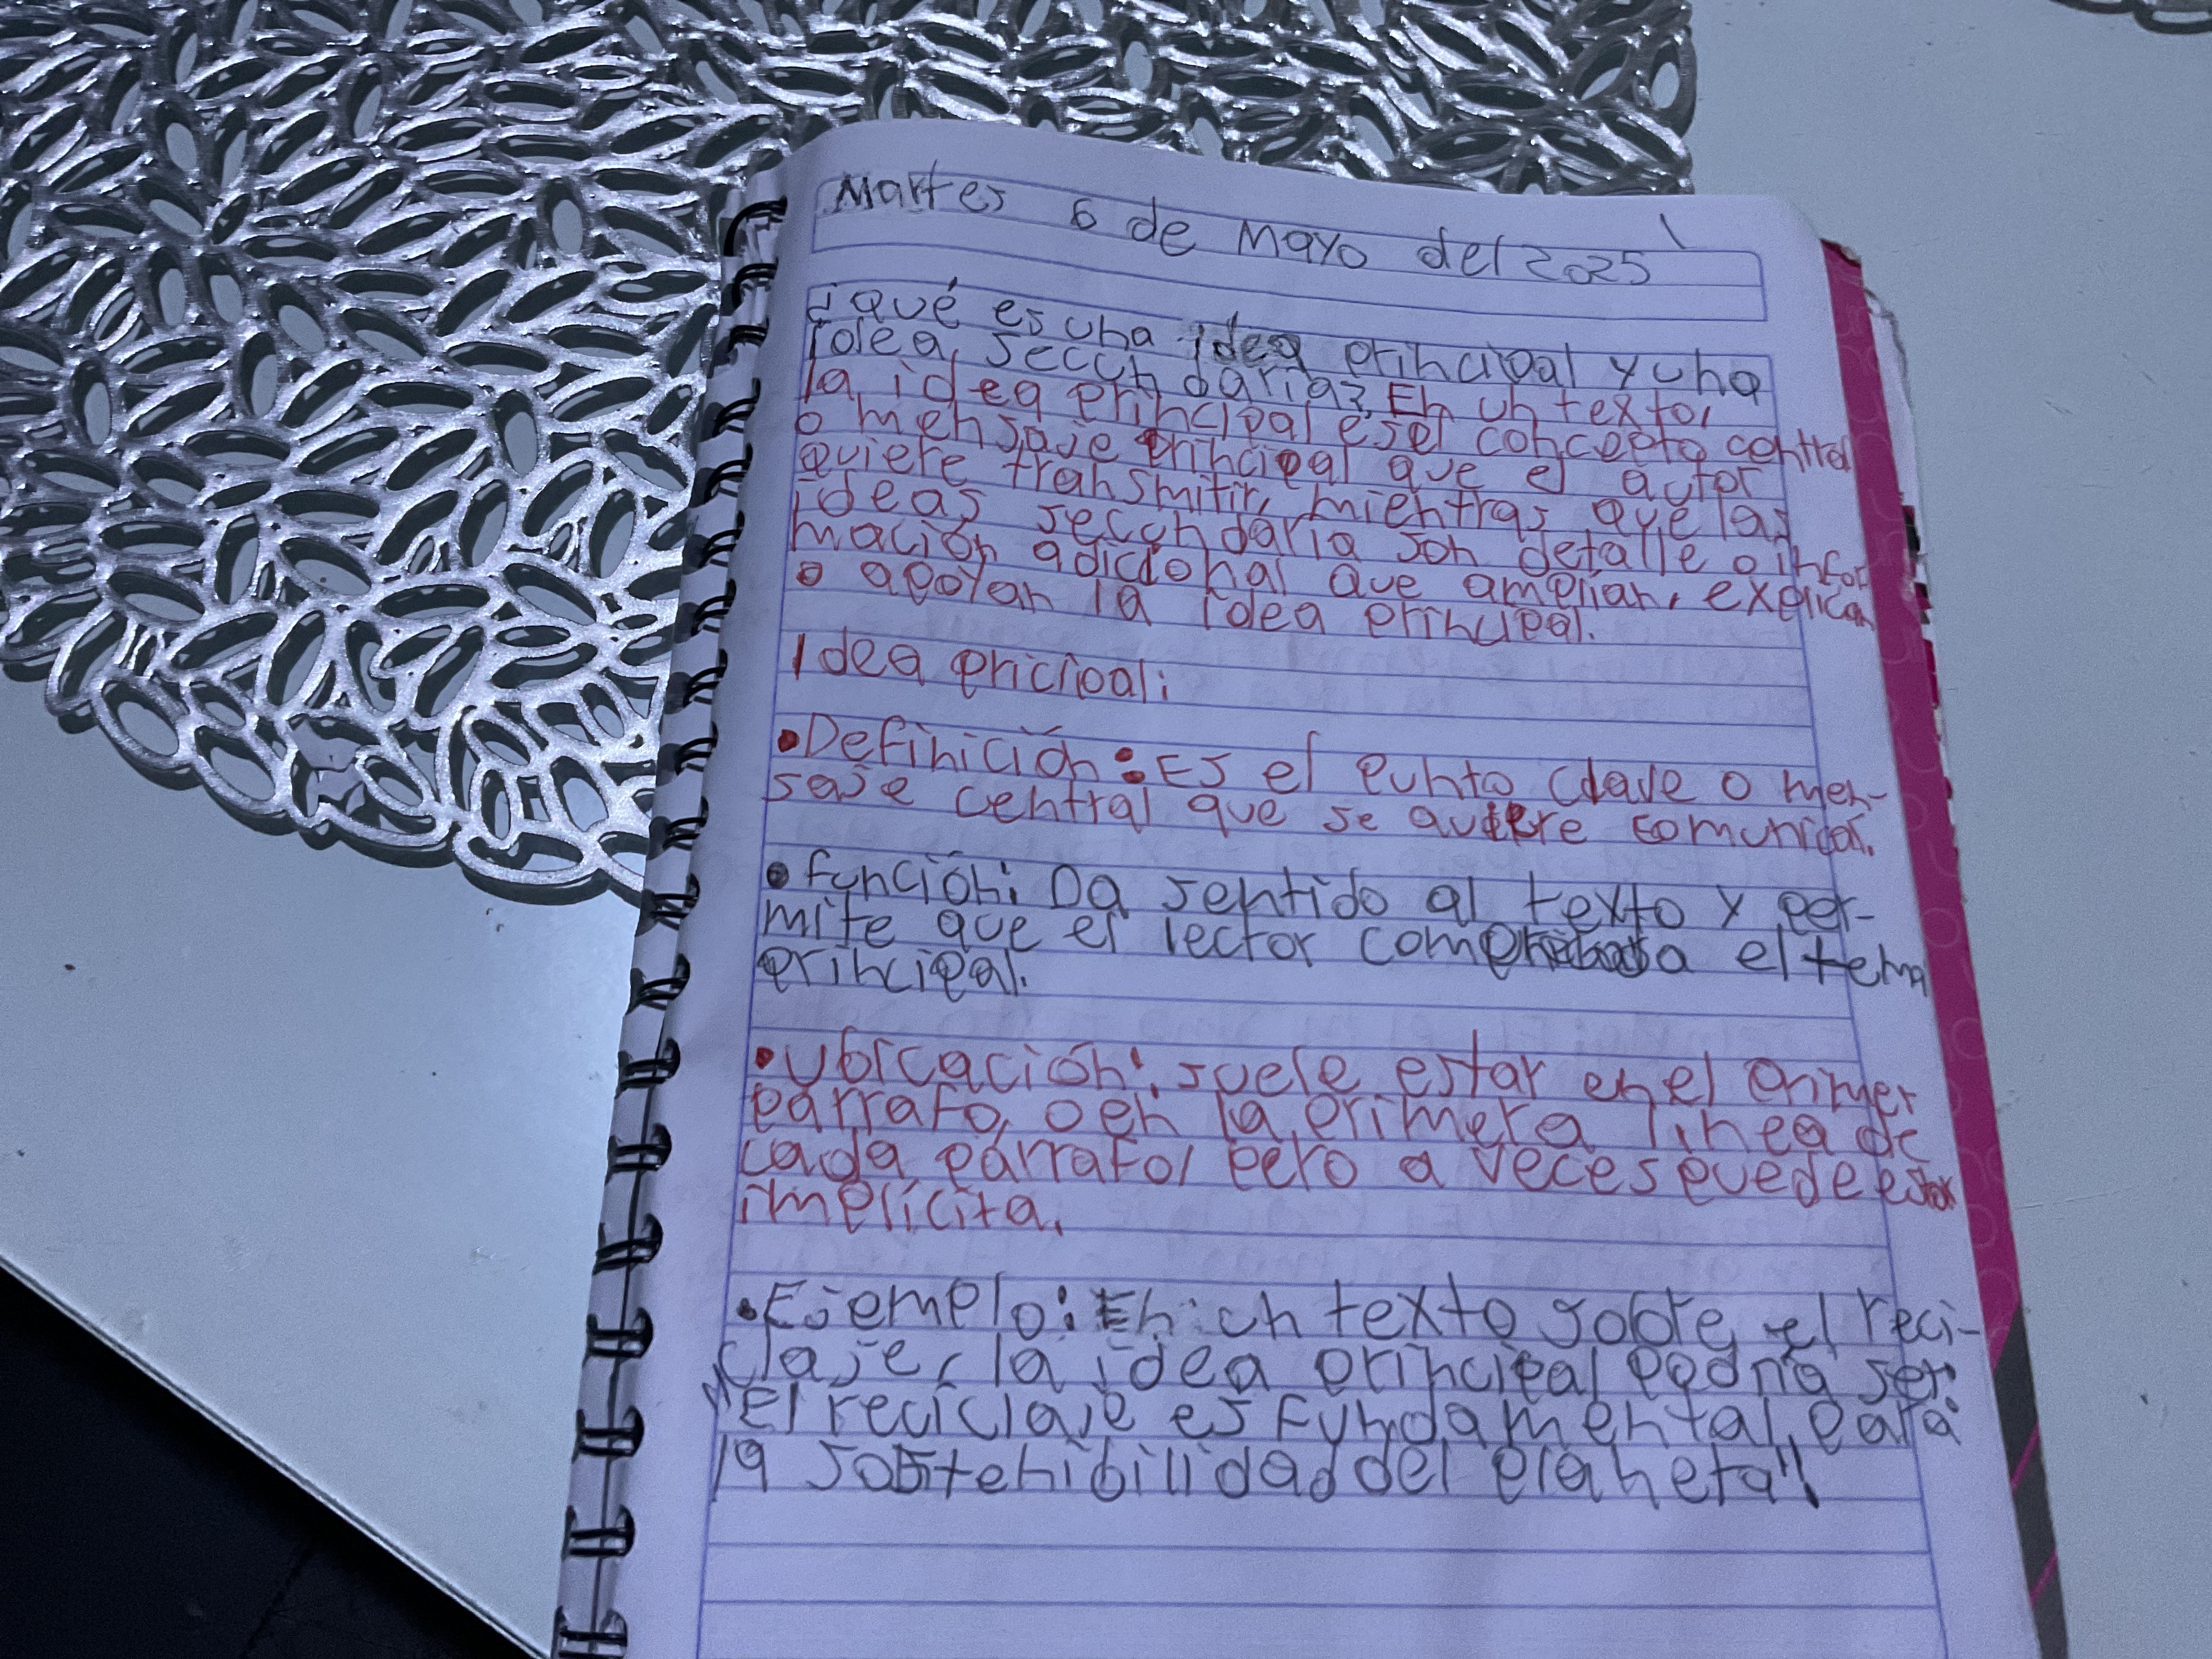 Martes 6 de Mayo del 2025
¿qué es una idea principal y una
idea secundaria? En un texto,
la idea principal es el concepto central
o mensaje principal que el autor
quiere transmitir, mientras que las
ideas secundaria son detalle o infor
mación adicional que amplian, explican
o apoyan la idea principal.
Idea pricipal:
• Definición: Es el punto clave o men-
saje central que se quiere comunicar.
• función: Da sentido al texto y per-
mite que el lector comprenda el tema
principal.
• Ubicación: suele estar en el primer
párrafo, o en la primera línea de
cada párrafo, pero a veces puede estar
implícita.
• Ejemplo: En un texto sobre el reci-
claje, la idea principal podría ser:
"El reciclaje es fundamental para
la sostenibilidad del planeta".